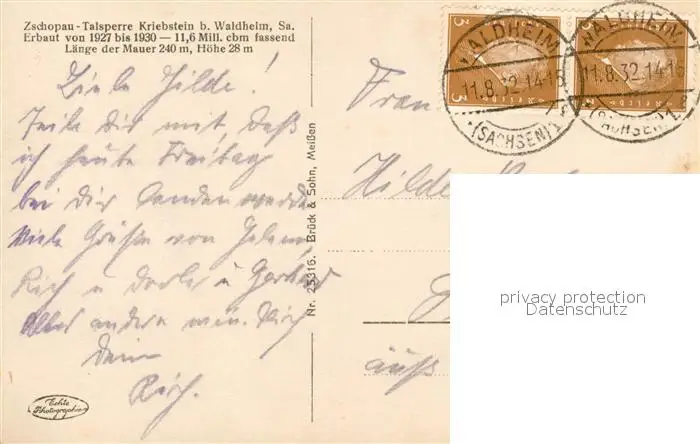 Zschopau-Talsperre Kriebstein b. Waldheim, Sa.
Erbaut von 1927 bis 1930 — 11,6 Mill. cbm fassend
Länge der Mauer 240 m, Höhe 28 m
Liebe Hilde!
Teile Dir mit, daß
ich heute Freitag
bei Dir landen werde
Viele Grüße von
Rich u u Gerhard
Alles andere mündlich
Dein
Rich.
Echte
Photographie
Nr. 25316. Brück & Sohn, Meißen
3
3
3
3
WALDHEIM
11.8.32.14-15
(SACHSEN)
WALDHEIM
11.8.32.14-15
(SACHSEN)
Frau
Hilde
privacy protection
Datenschutz